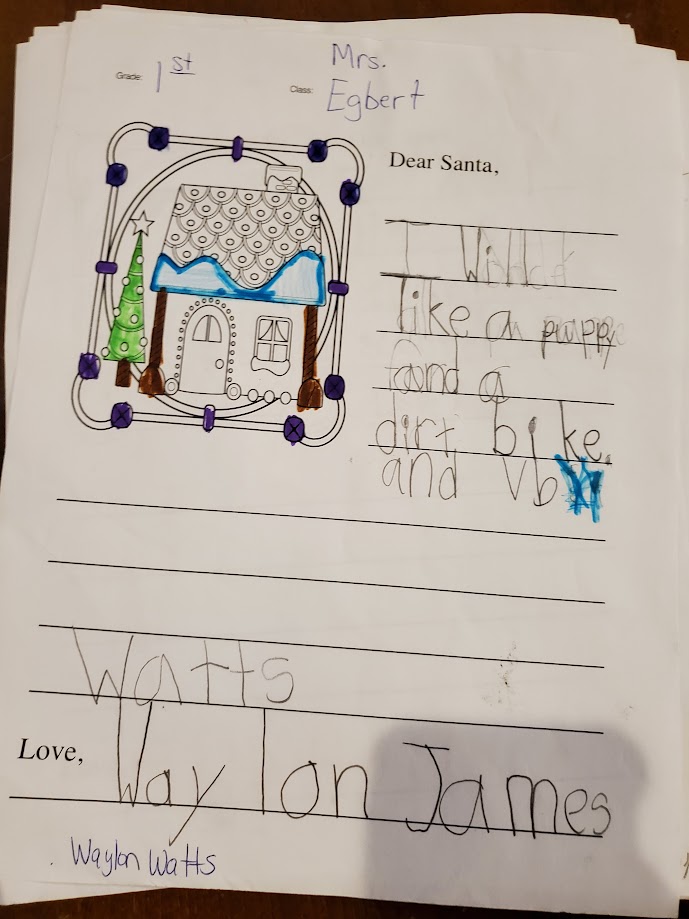 Grade: 1st
Class: Mrs. Egbert
Dear Santa,
I
like a puppy
and a
dirt bike.
and vb
Watts
Love, Waylon James
Waylon Watts